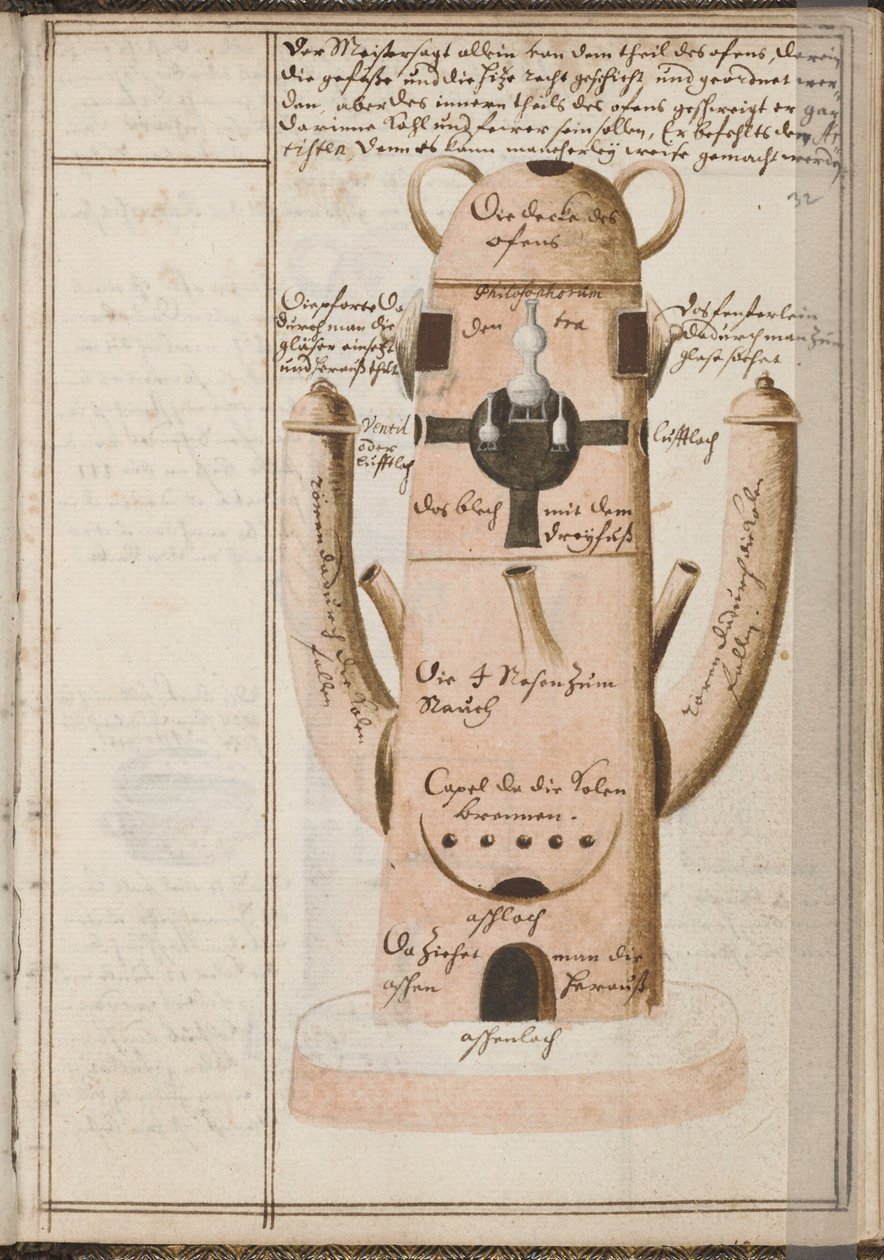 Der Meister sagt allein von dem theil des ofens, darein
die gefäße und die Hitze recht geschickt und geordnet wer-
den, aber des innern theils des ofens geschweigt er gar
darinne Kohl und feuer sein sollen, Er befehlts dem Ar-
tisten, Denn es kann mancherley weise gemacht werden
32
Die decke des
ofens
Philosophorum
den tra
Die pforte Da
durch man die
gläser einsetzt
und heraußthut
Das fensterlein
dadurch man zum
glase siehet
Ventil
oder
lufftloch
lufftloch
das blech mit dem
dreyfuß
rören dadurch die Kolen
fallen
rören dadurch die Kolen
fallen.
Die 4 Nasen zum
Rauch
Capel da die Kolen
brennen.
aschloch
Da ziehet man die
aschen herauß
aschenloch